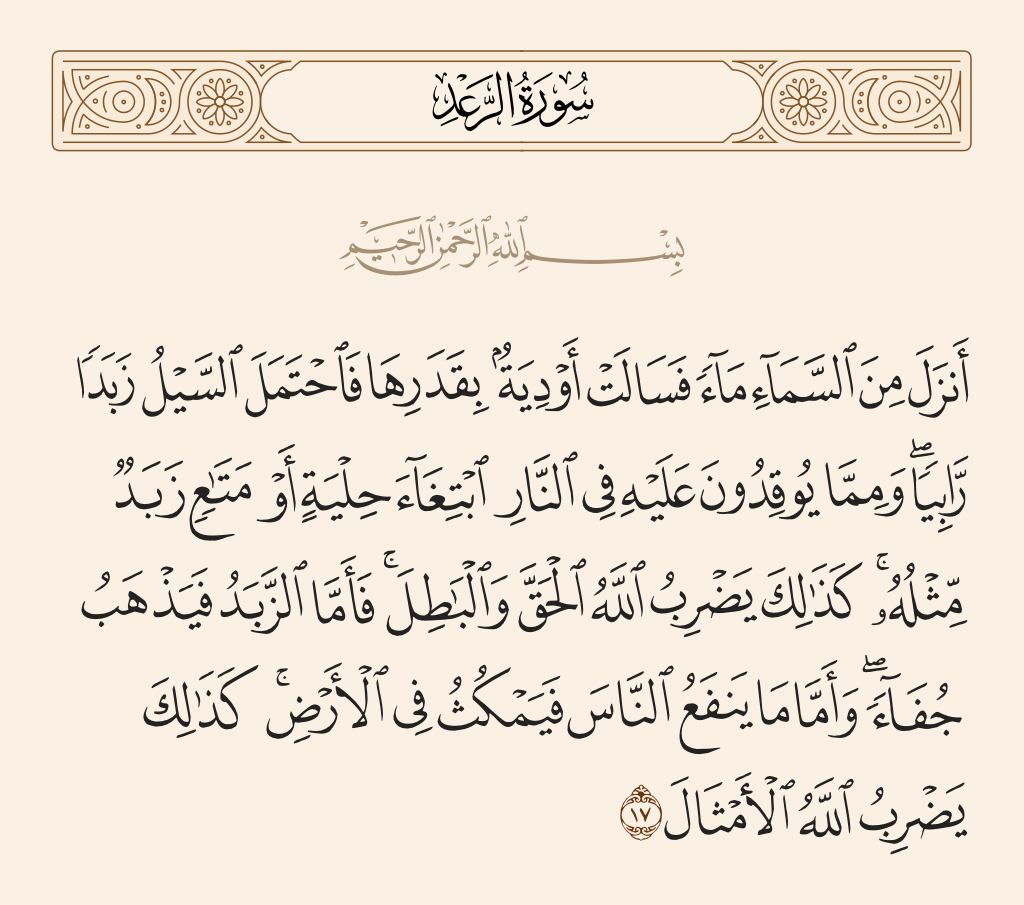 سُورَةُ الرَّعْدِ
بِسْمِ ٱللَّهِ ٱلرَّحْمَٰنِ ٱلرَّحِيمِ
أَنزَلَ مِنَ ٱلسَّمَآءِ مَآءً فَسَالَتْ أَوْدِيَةٌۢ بِقَدَرِهَا فَٱحْتَمَلَ ٱلسَّيْلُ زَبَدًا
رَّابِيًا ۖ وَمِمَّا يُوقِدُونَ عَلَيْهِ فِى ٱلنَّارِ ٱبْتِغَآءَ حِلْيَةٍ أَوْ مَتَٰعٍ زَبَدٌ
مِّثْلُهُۥ ۚ كَذَٰلِكَ يَضْرِبُ ٱللَّهُ ٱلْحَقَّ وَٱلْبَٰطِلَ ۚ فَأَمَّا ٱلزَّبَدُ فَيَذْهَبُ
جُفَآءً ۖ وَأَمَّا مَا يَنفَعُ ٱلنَّاسَ فَيَمْكُثُ فِى ٱلْأَرْضِ ۚ كَذَٰلِكَ
يَضْرِبُ ٱللَّهُ ٱلْأَمْثَالَ ١٧